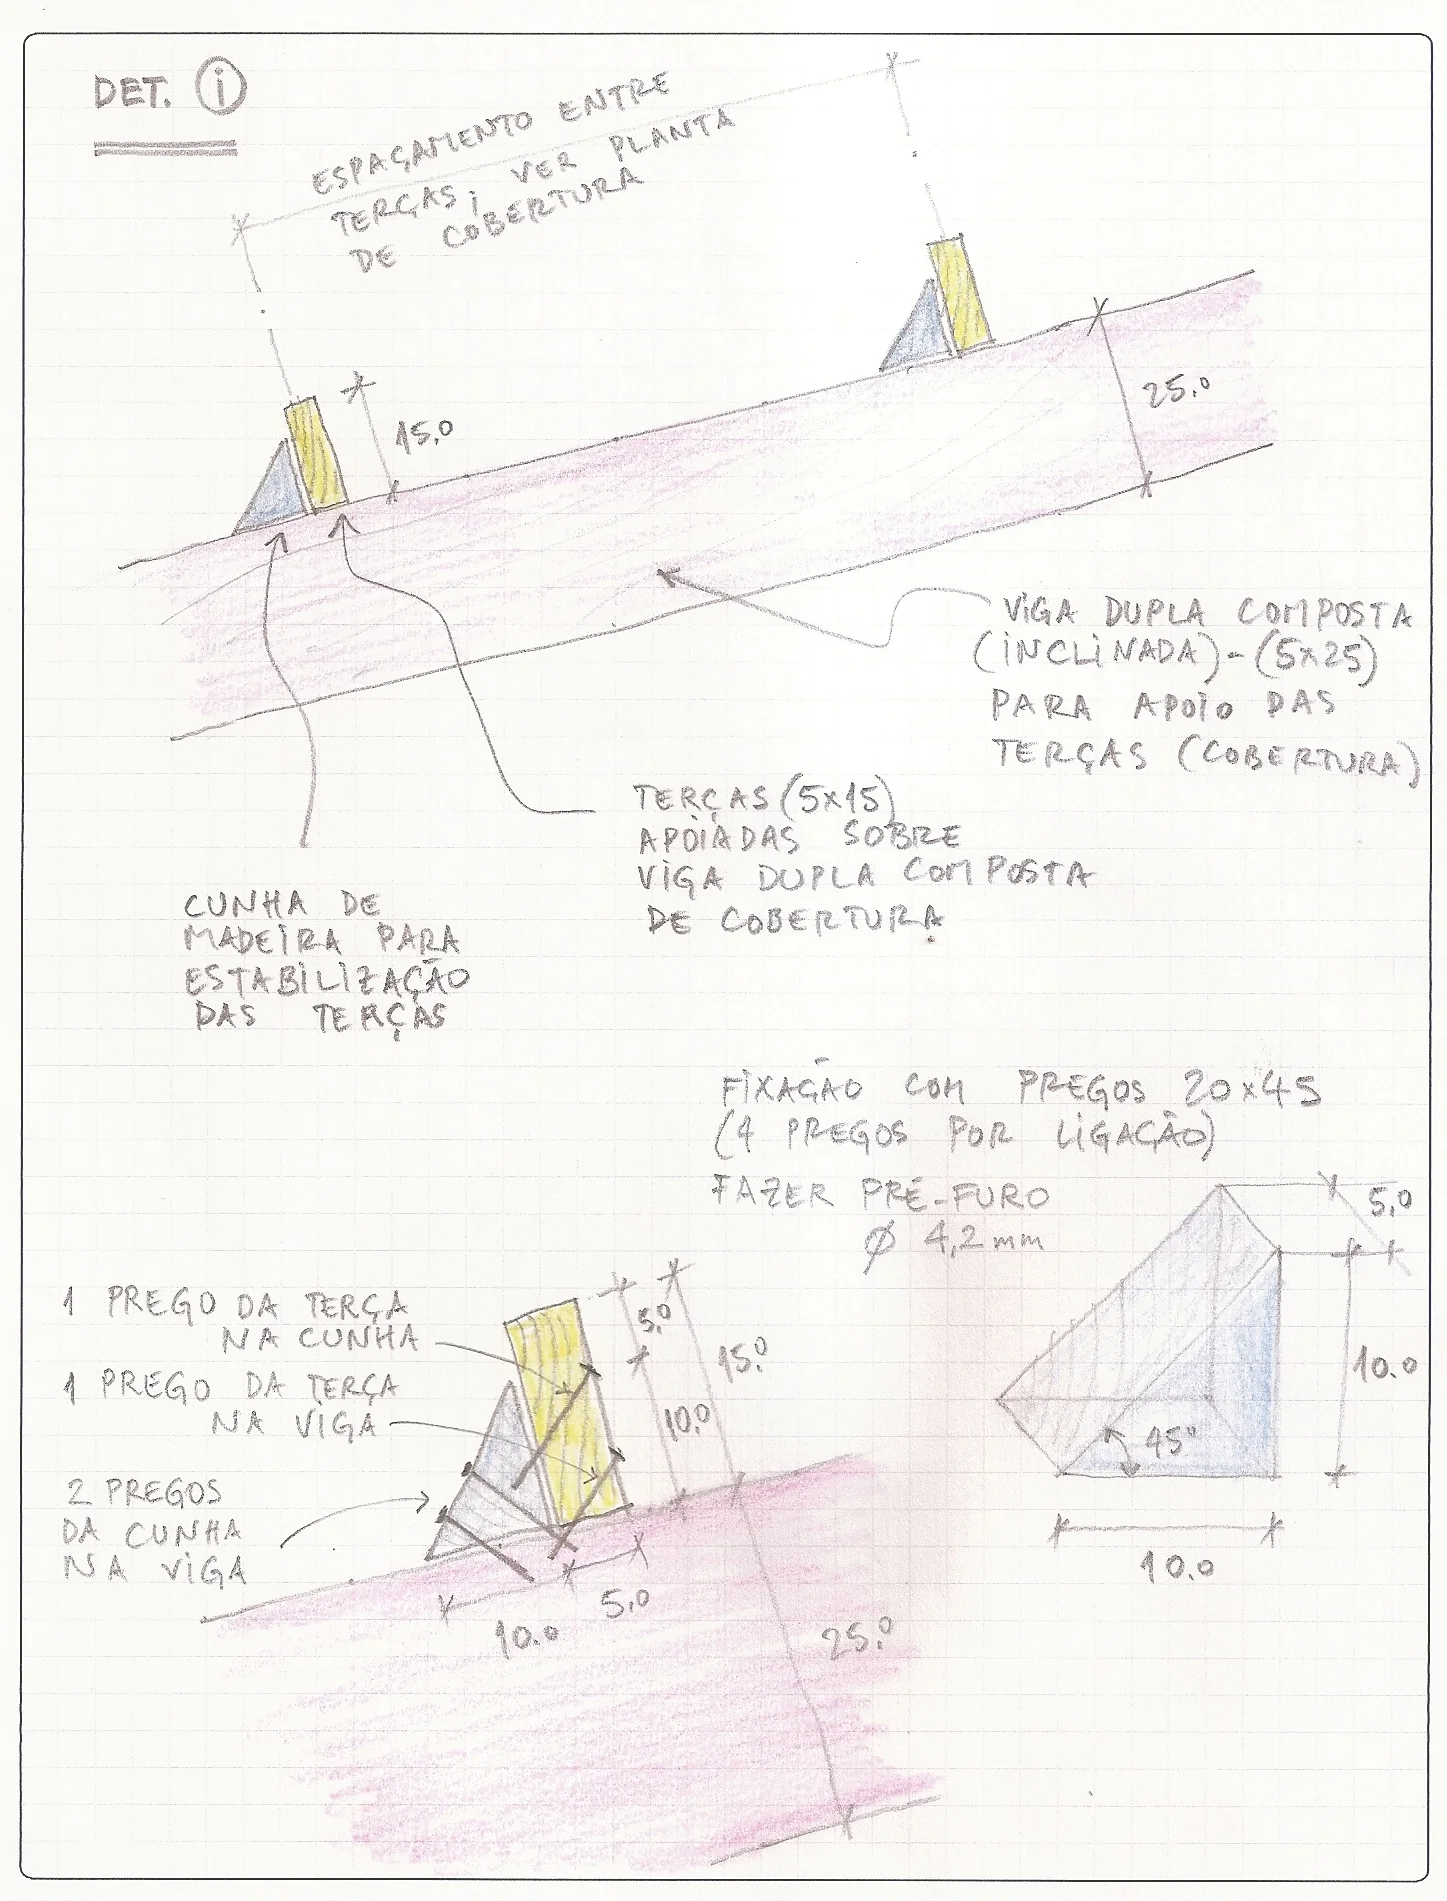 DET. i
ESPAÇAMENTO ENTRE
TERÇAS; VER PLANTA
DE COBERTURA
15.0
25.0
VIGA DUPLA COMPOSTA
(INCLINADA)-(5x25)
PARA APOIO DAS
TERÇAS (COBERTURA)
TERÇAS (5x15)
APOIADAS SOBRE
VIGA DUPLA COMPOSTA
DE COBERTURA
CUNHA DE
MADEIRA PARA
ESTABILIZAÇÃO
DAS TERÇAS
FIXAÇÃO COM PREGOS 20x45
(4 PREGOS POR LIGAÇÃO)
FAZER PRÉ-FURO
Ø 4,2mm
5,0
10.0
45°
10.0
1 PREGO DA TERÇA
NA CUNHA
1 PREGO DA TERÇA
NA VIGA
2 PREGOS
DA CUNHA
NA VIGA
5.0
15.0
10.0
5.0
10.0
25.0